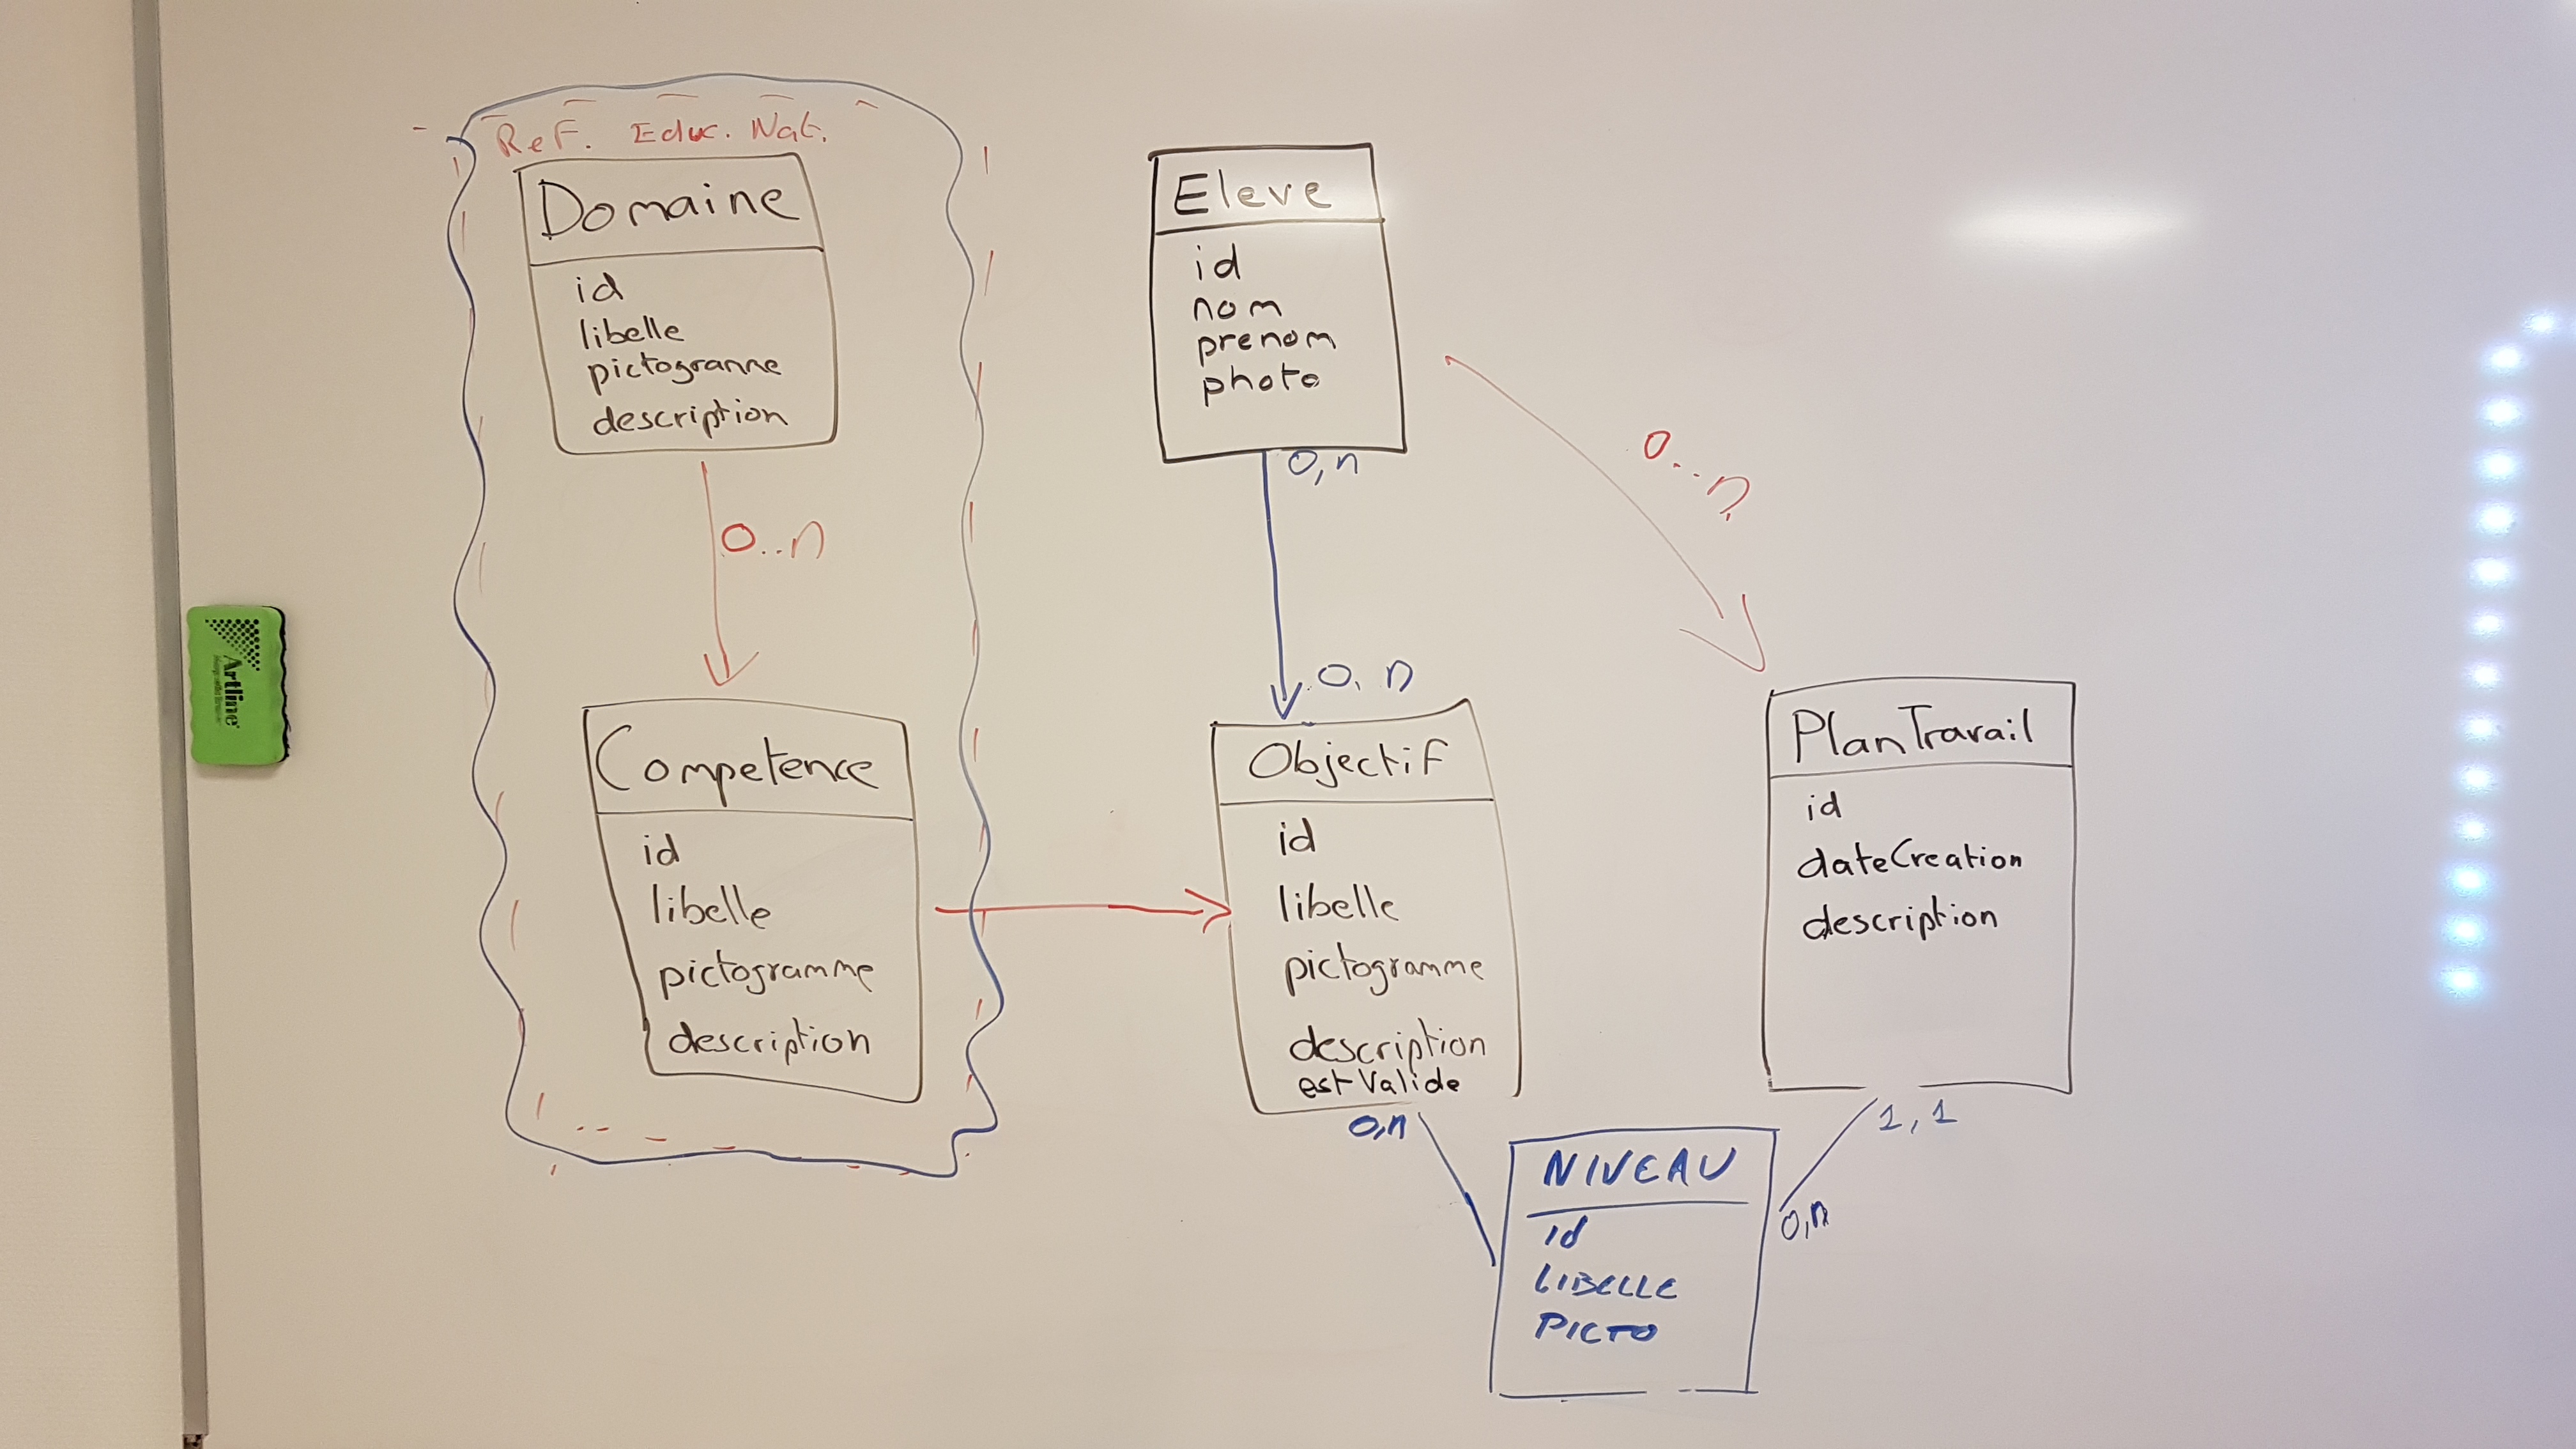 Ref. Educ. Nat.
Domaine
id
libelle
pictogranne
description
0..n
Competence
id
libelle
pictogramme
description
Eleve
id
nom
prenom
photo
0,n
0, n
0...n
Objectif
id
libelle
pictogramme
description
estValide
0,n
PlanTravail
id
dateCreation
description
1,1
0,n
NIVEAU
id
LIBELLE
PICTO
Artline